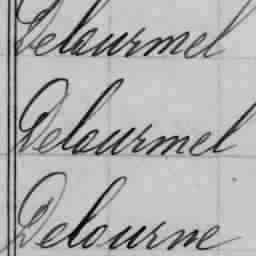 Delourmel
Delourmel
Delourne